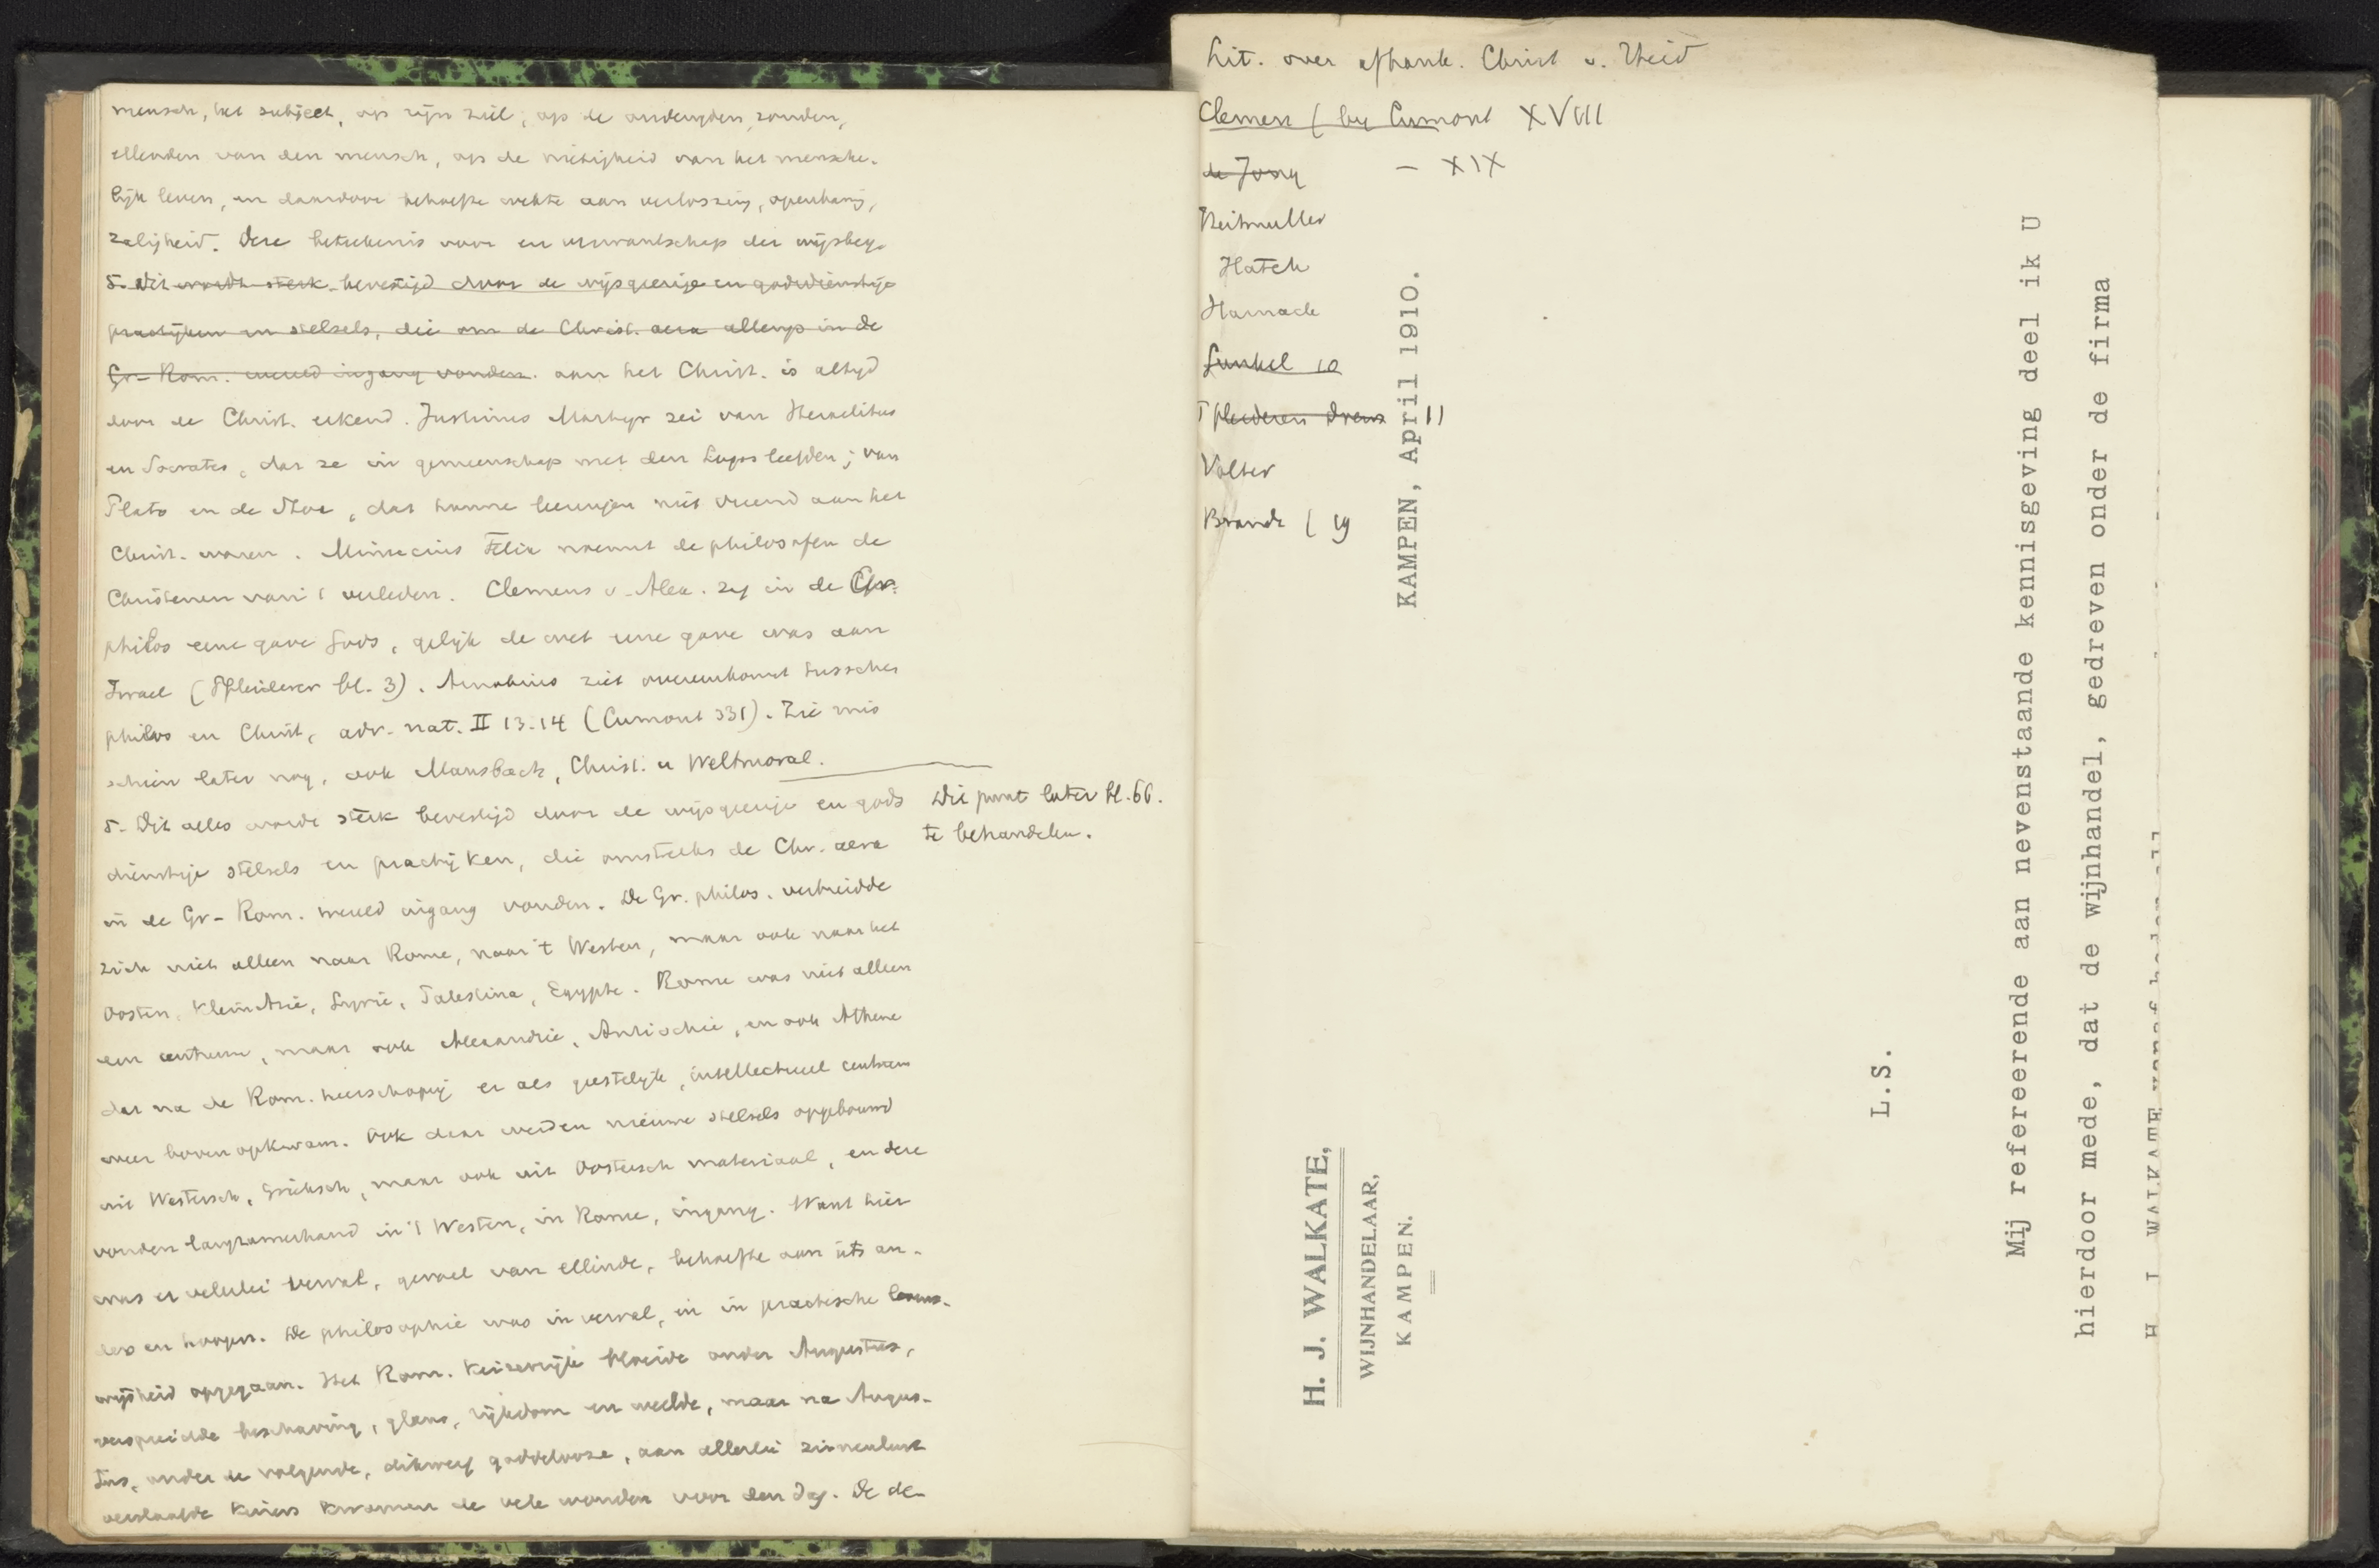 mensch, het subject, op zijn ziel, op de ondeugden, zonden,
ellenden van den mensch, op de nietigheid van het mensche-
lijk leven, en daardoor behoefte wekte aan verlossing, openbaring,
zaligheid. Deze beteekenis voor en verwantschap der wijsbeg.
5. Dit wordt sterk bevestigd door de wijsgeerige en godsdienstige
practijken en stelsels, die om de Christ. aera allengs in de
Gr-Rom. wereld ingang vonden. aan het Christ. is altijd
door de Christ. erkend. Justinus Martyr zei van Heraclitus
en Socrates, dat ze in gemeenschap met den Logos leefden; van
Plato en de Stoa, dat hunne leeringen niet vreemd aan het
Christ. waren. Minucius Felix noemt de philosofen de
Christenen van 't verleden. Clemens v. Alex. zag in de Gr.
philos eene gave Gods, gelijk de wet eene gave was aan
Israel (Pfleiderer bl. 3). Arnobius ziet overeenkomst tusschen
philos en Christ, adv. nat. II 13.14 (Cumont 331). Zie mis
schien later nog, ook Mausbach, Christ. u Weltmoral.
5. Dit alles wordt sterk bevestigd door de wijsgeerige en gods
dienstige stelsels en practijken, die omstreeks de Chr. aera
in de Gr-Rom. wereld ingang vonden. De Gr. philos. verbreidde
zich niet alleen naar Rome, naar 't Westen, maar ook naar het
Oosten, Klein Azië, Syrië, Palestina, Egypte. Rome was niet alleen
een centrum, maar ook Alexandrië, Antiochië, en ook Athene
dat na de Rom. heerschappij er als geestelijk, intellectueel centrum
weer bovenop kwam. Ook daar werden nieuwe stelsels opgebouwd
uit Westersch, Grieksch, maar ook uit Oostersch materiaal, en deze
vonden langzamerhand in 't Westen, in Rome, ingang. Want hier
was er velerlei verval, gevoel van ellende, behoefte aan iets an-
ders en hoogers. De philosophie was in verval, en in practische levens-
wijsheid opgegaan. Het Rom. Keizerrijk bloeide onder Augustus,
verspreidde beschaving, glans, rijkdom en weelde, maar na Augus-
tus, onder de volgende, dikwerf goddelooze, aan allerlei zinnelust
verslaafde Keizers kwamen de vele wonden voor den dag. De de-
Dit punt later bl. 66.
te behandelen.
Lit. over afhank. Christ v. Heid
Clemen ( by Cumont XVIII
de Jong — XIX
Heitmuller
Hatch
Harnack
Gunkel 10
Pfleiderer Drews 11
Volter
Brandt ( 19
KAMPEN, April 1910.
H. J. WALKATE,
WIJNHANDELAAR,
KAMPEN.
L.S.
Mij refereerende aan nevenstaande kennisgeving deel ik U
hierdoor mede, dat de wijnhandel, gedreven onder de firma
H. J. WALKATE